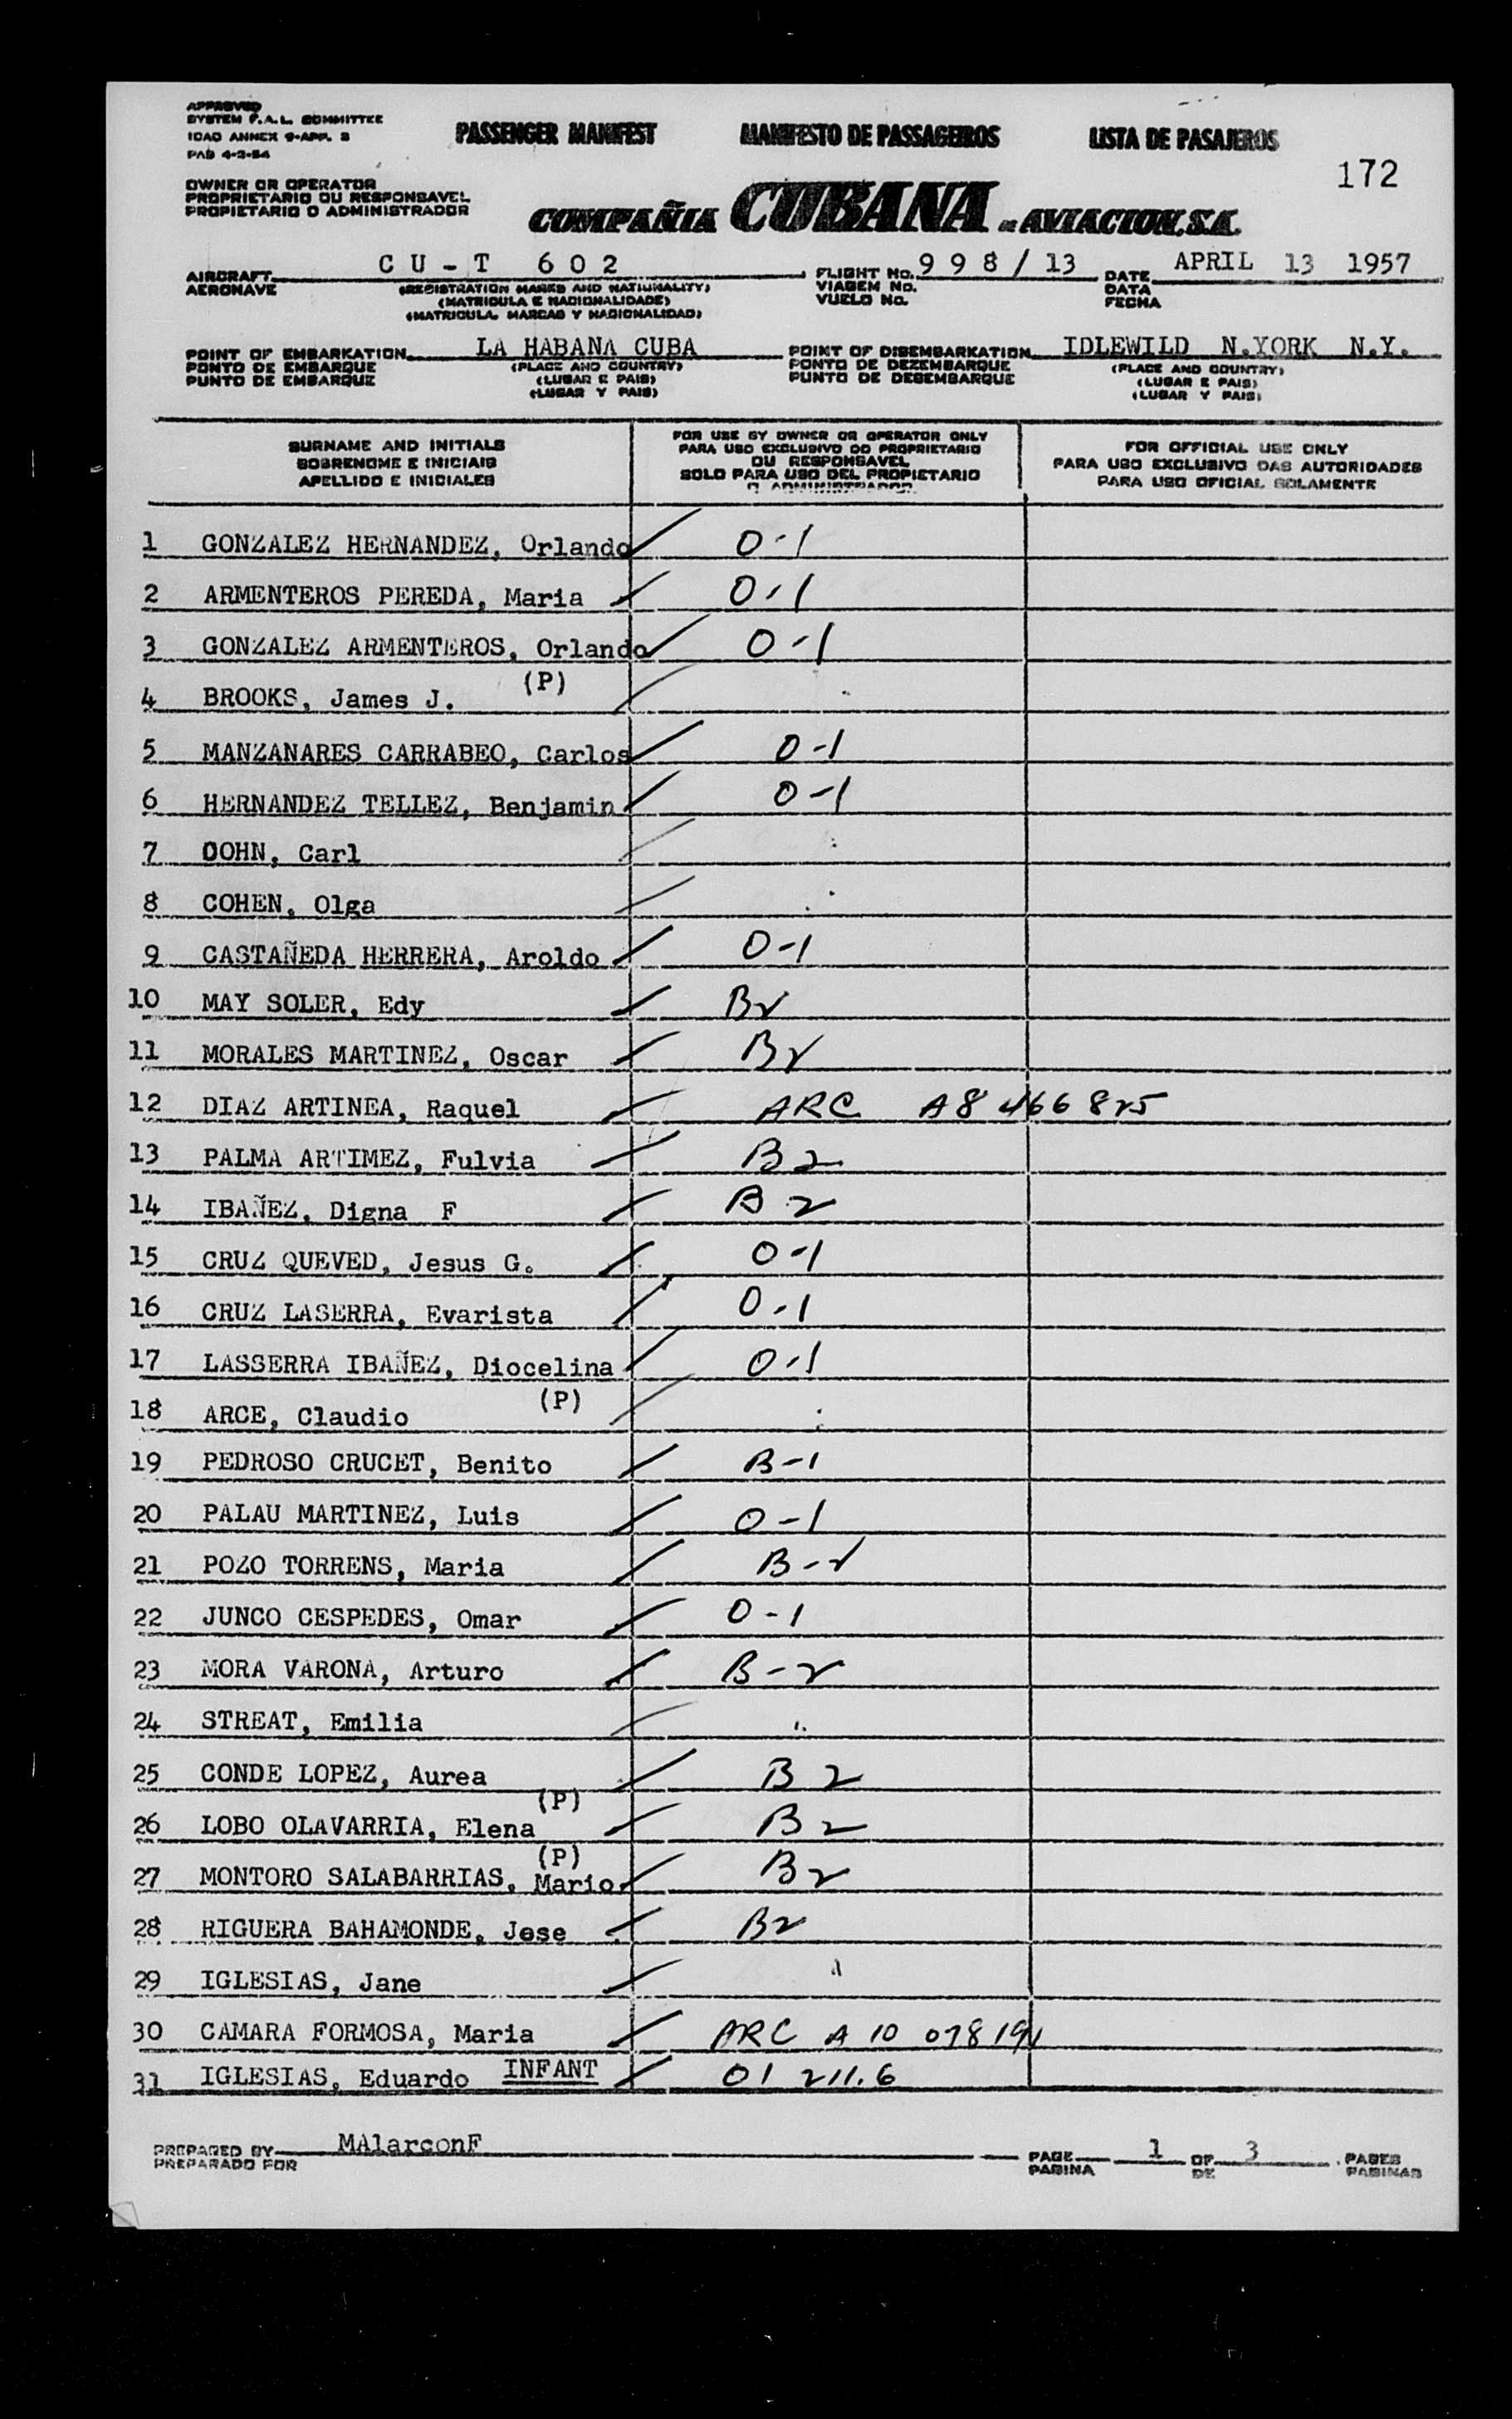 APPROVED
SYSTEM F.A.L. COMMITTEE
ICAO ANNEX 9-APP. 3
PAB 4-2-54
PASSENGER MANIFEST MANIFESTO DE PASSAGEIROS LISTA DE PASAJEROS
172
OWNER OR OPERATOR
PROPRIETARIO OU RESPONSAVEL
PROPIETARIO O ADMINISTRADOR
COMPAÑIA CUBANA DE AVIACION, S.A.
AIRCRAFT CU-T 602 FLIGHT No. 998/13 DATE APRIL 13 1957
AERONAVE (REGISTRATION MARKS AND NATIONALITY) VIAGEM No. DATA
(MATRICULA E NACIONALIDADE) VUELO No. FECHA
(MATRICULA, MARCAS Y NACIONALIDAD)
POINT OF EMBARKATION LA HABANA CUBA POINT OF DISEMBARKATION IDLEWILD N.YORK N.Y.
PONTO DE EMBARQUE (PLACE AND COUNTRY) PONTO DE DEZEMBARQUE (PLACE AND COUNTRY)
PUNTO DE EMBARQUE (LUGAR E PAIS) PUNTO DE DESEMBARQUE (LUGAR E PAIS)
(LUGAR Y PAIS) (LUGAR Y PAIS)
SURNAME AND INITIALS
SOBRENOME E INICIAIS
APELLIDO E INICIALES
FOR USE BY OWNER OR OPERATOR ONLY
PARA USO EXCLUSIVO DO PROPRIETARIO
OU RESPONSAVEL
SOLO PARA USO DEL PROPIETARIO
O ADMINISTRADOR
FOR OFFICIAL USE ONLY
PARA USO EXCLUSIVO DAS AUTORIDADES
PARA USO OFICIAL SOLAMENTE
1 GONZALEZ HERNANDEZ, Orlando 0-1
2 ARMENTEROS PEREDA, Maria 0-1
3 GONZALEZ ARMENTEROS, Orlando 0-1
4 BROOKS, James J. (P)
5 MANZANARES CARRABEO, Carlos 0-1
6 HERNANDEZ TELLEZ, Benjamin 0-1
7 DOHN, Carl
8 COHEN, Olga
9 CASTAÑEDA HERRERA, Aroldo 0-1
10 MAY SOLER, Edy B2
11 MORALES MARTINEZ, Oscar B2
12 DIAZ ARTINEA, Raquel ARC A8 466 825
13 PALMA ARTIMEZ, Fulvia B2
14 IBAÑEZ, Digna F B2
15 CRUZ QUEVED, Jesus G. 0-1
16 CRUZ LASERRA, Evarista 0-1
17 LASSERRA IBAÑEZ, Diocelina 0-1
18 ARCE, Claudio (P)
19 PEDROSO CRUCET, Benito B-1
20 PALAU MARTINEZ, Luis 0-1
21 POZO TORRENS, Maria B-2
22 JUNCO CESPEDES, Omar 0-1
23 MORA VARONA, Arturo B-2
24 STREAT, Emilia
25 CONDE LOPEZ, Aurea B2
26 LOBO OLAVARRIA, Elena (P) B2
27 MONTORO SALABARRIAS, Mario (P) B2
28 RIGUERA BAHAMONDE, Jose B2
29 IGLESIAS, Jane
30 CAMARA FORMOSA, Maria ARC A 10 078 191
31 IGLESIAS, Eduardo INFANT 01 211.6
PREPARED BY MAlarconF PAGE 1 OF 3 PAGES
PREPARADO POR PAGINA DE PAGINAS